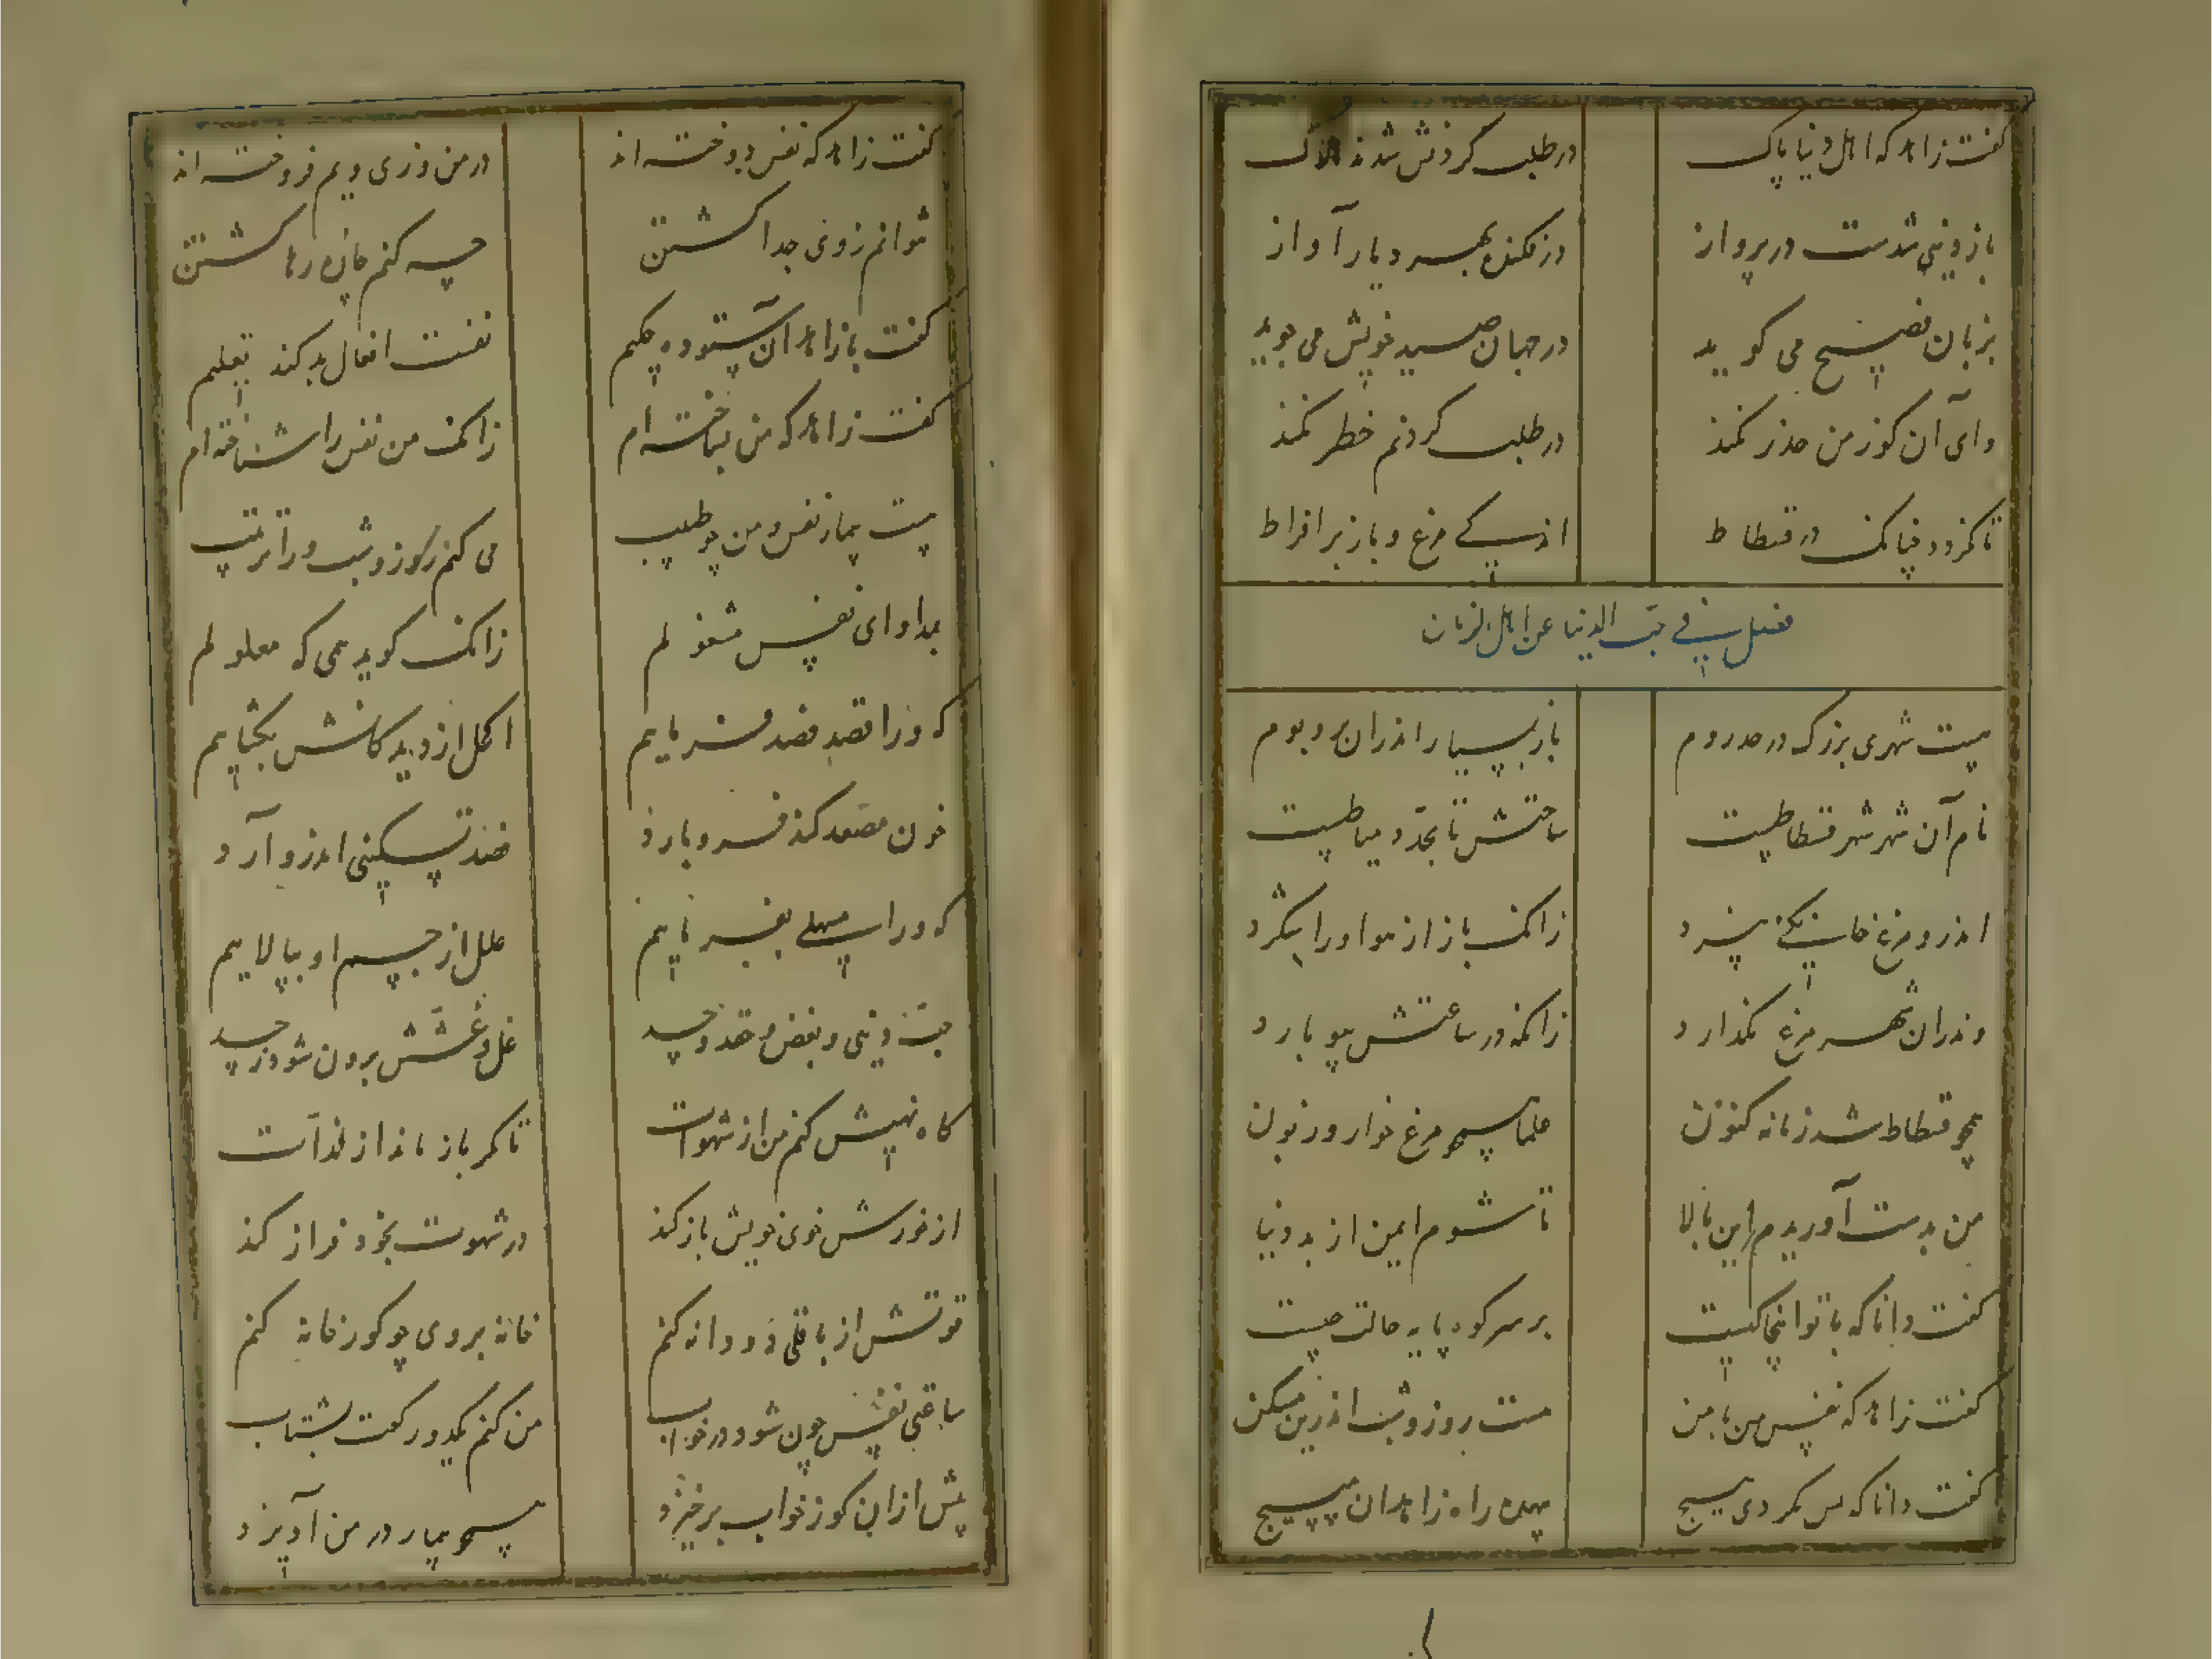 کفت زاهد که اهل دنیا پاک
در طلب کردنش شدند هلاک
باز دنیی شدست در پرواز
در فکنده بهر دیار آواز
بزبان فصیح می کوید
در جهان صید خویش می جوید
وای آن کو ز من حذر نکند
در طلب کردنم خطر نکند
تا نکردد چنانک در قسطاط
اندکی مرغ و باز بر افراط
فصل فی حب الدنیا عن اهل الزمان
هست شهری بزرک در حد روم
باز بسیار اندران بر و بوم
نام آن شهر شهر قسطاطیست
ساحتش تا بحد دمیاطیست
اندرو مرغ خانکی نپرد
زانک باز از هوا ورا شکرد
وندران شهر مرغ نکذارد
زانکه در ساعتش بیوبارد
همچو قسطاط شد زمانه کنون
علما همچو مرغ خوار و زبون
من بدست آوریدم این بالا
تا شوم ایمن از بد دنیا
کفت دانا که با تو اینجا کیست
بر سر کوه پایه حالت چیست
کفت زاهد که نفس من با من
هست روز و شب اندرین مسکن
کفت دانا که پس نکردی هیچ
بیهده راه زاهدان مپیچ
کفت زاهد که نفس دوخته اند
در من وزی ویم فروخته اند
نتوانم ز وی جدا کشتن
چه کنم چاره رها کشتن
کفت با زاهد آن ستوده حکیم
نفست افعال بد کند تعلیم
کفت زاهد که من بساخته ام
زانک من نفس را شناخته ام
هست بیمار نفس و من چو طبیب
می کنم روز و شب ورا ترتیب
بمداوای نفس مشغولم
زانک کوید همی که معلولم
که ورا قصد فصد فرمایم
اکحل از دیدکانش بکشایم
خون چو قصد کند فرو بارد
فصد تسکینی اندرو آرد
که ورا مسهلی بفرمایم
علل از جسم او بپالایم
حب دنیی و بغض و حقد و حسد
غل و غشش برون شود ز جسد
کاه نهیش کنم من از شهوات
تا مکر باز ماند از لذات
از خورش خوی خویش باز کند
در شهوت بخود فراز کند
قوتش از باقلی دو دانه کنم
خانه بر وی چو کورخانه کنم
ساعتی نفس چون شود در خواب
من کنم یک دو رکعت بشتاب
پیش از آن کو ز خواب برخیزد
همچو بیمار در من آویزد